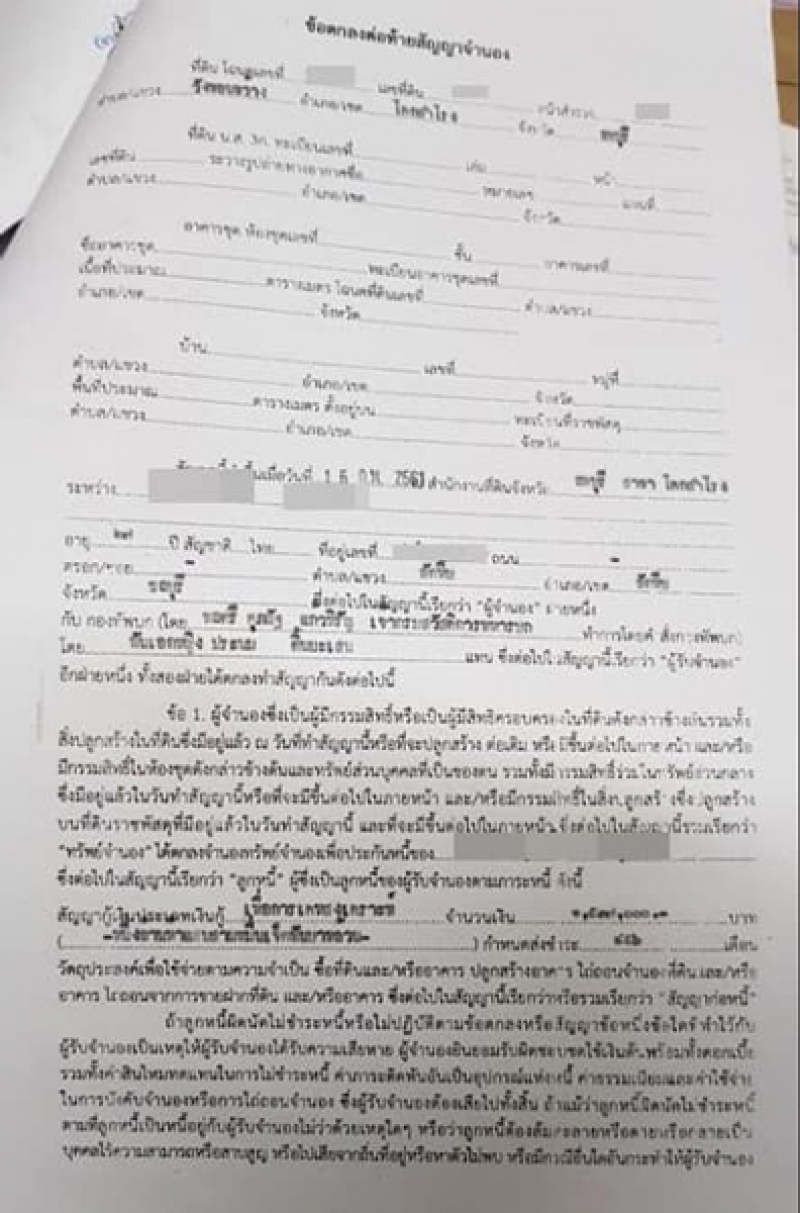 ข้อตกลงต่อท้ายสัญญาจำนอง
ที่ดิน โฉนดเลขที่ เลขที่ดิน หน้าสำรวจ
ตำบล/แขวง วังขอนขวาง อำเภอ/เขต โคกสำโรง จังหวัด ลพบุรี
ที่ดิน น.ส. 3ก. ทะเบียนเลขที่ เล่ม หน้า
เลขที่ดิน ระวางรูปถ่ายทางอากาศชื่อ หมายเลข แผ่นที่
ตำบล/แขวง อำเภอ/เขต จังหวัด
อาคารชุด ห้องชุดเลขที่ ชั้น อาคารเลขที่
ชื่ออาคารชุด ทะเบียนอาคารชุดเลขที่
เนื้อที่ประมาณ ตารางเมตร โฉนดที่ดินเลขที่ ตำบล/แขวง
อำเภอ/เขต จังหวัด
บ้าน เลขที่ หมู่ที่
ตำบล/แขวง อำเภอ/เขต จังหวัด
พื้นที่ประมาณ ตารางเมตร ตั้งอยู่บน ทะเบียนที่ราชพัสดุ
ตำบล/แขวง อำเภอ/เขต จังหวัด
วันที่ 1 6 2563 สำนักงานที่ดินจังหวัด ลพบุรี สาขา โคกสำโรง
ระหว่าง
อายุ ปี สัญชาติ ไทย ที่อยู่เลขที่ ถนน -
ตรอก/ซอย - ตำบล/แขวง อำเภอ/เขต
จังหวัด ซึ่งต่อไปในสัญญานี้เรียกว่า "ผู้จำนอง" ฝ่ายหนึ่ง
กับ กองทัพบก (โดย เจ้ากรมสวัสดิการทหารบก ทำการโดยคำสั่งกองทัพบก)
โดย พันเอกหญิง แทน ซึ่งต่อไปในสัญญานี้เรียกว่า "ผู้รับจำนอง"
อีกฝ่ายหนึ่ง ทั้งสองฝ่ายได้ตกลงทำสัญญากันดังต่อไปนี้
ข้อ 1. ผู้จำนองซึ่งเป็นผู้มีกรรมสิทธิ์หรือเป็นผู้มีสิทธิครอบครองในที่ดินดังกล่าวข้างต้นรวมทั้ง
สิ่งปลูกสร้างในที่ดินซึ่งมีอยู่แล้ว ณ วันที่ทำสัญญานี้หรือที่จะปลูกสร้าง ต่อเติม หรือ มีขึ้นต่อไปในภายหน้า และ/หรือ
มีกรรมสิทธิ์ในห้องชุดดังกล่าวข้างต้นและทรัพย์ส่วนบุคคลที่เป็นของตน รวมทั้งมีกรรมสิทธิ์ร่วมในทรัพย์ส่วนกลาง
ซึ่งมีอยู่แล้วในวันทำสัญญานี้หรือที่จะมีขึ้นต่อไปในภายหน้า และ/หรือมีกรรมสิทธิ์ในสิ่งปลูกสร้างซึ่งปลูกสร้าง
บนที่ดินราชพัสดุที่มีอยู่แล้วในวันทำสัญญานี้ และที่จะมีขึ้นต่อไปในภายหน้า ซึ่งต่อไปในสัญญานี้รวมเรียกว่า
"ทรัพย์จำนอง" ได้ตกลงจำนองทรัพย์จำนองเพื่อประกันหนี้ของ
ซึ่งต่อไปในสัญญานี้เรียกว่า "ลูกหนี้" ผู้ซึ่งเป็นลูกหนี้ของผู้รับจำนองตามภาระหนี้ ดังนี้
สัญญากู้เงินประเภทเงินกู้ เพื่อการเคหะสงเคราะห์ จำนวนเงิน บาท
( ) กำหนดส่งชำระ เดือน
วัตถุประสงค์เพื่อใช้จ่ายตามความจำเป็น ซื้อที่ดินและ/หรืออาคาร ปลูกสร้างอาคาร ไถ่ถอนจำนองที่ดิน และ/หรือ
อาคาร ไถ่ถอนจากการขายฝากที่ดิน และ/หรืออาคาร ซึ่งต่อไปในสัญญานี้เรียกว่าหรือรวมเรียกว่า "สัญญาก่อหนี้"
ถ้าลูกหนี้ผิดนัดไม่ชำระหนี้หรือไม่ปฏิบัติตามข้อตกลงหรือสัญญาข้อหนึ่งข้อใดที่ทำไว้กับ
ผู้รับจำนองเป็นเหตุให้ผู้รับจำนองได้รับความเสียหาย ผู้จำนองยินยอมรับผิดชอบชดใช้เงินต้นพร้อมทั้งดอกเบี้ย
รวมทั้งค่าสินไหมทดแทนในการไม่ชำระหนี้ ค่าภาระติดพันอันเป็นอุปกรณ์แห่งหนี้ ค่าธรรมเนียมและค่าใช้จ่าย
ในการบังคับจำนองหรือการไถ่ถอนจำนอง ซึ่งผู้รับจำนองต้องเสียไปทั้งสิ้น ถ้าแม้ว่าลูกหนี้ผิดนัดไม่ชำระหนี้
ตามที่ลูกหนี้เป็นหนี้อยู่กับผู้รับจำนองไม่ว่าด้วยเหตุใดๆ หรือว่าลูกหนี้ต้องล้มละลายหรือตายหรือกลายเป็น
บุคคลไร้ความสามารถหรือสาบสูญ หรือไปเสียจากถิ่นที่อยู่หรือหาตัวไม่พบ หรือมีกรณีอื่นใดอันกระทำให้ผู้รับจำนอง